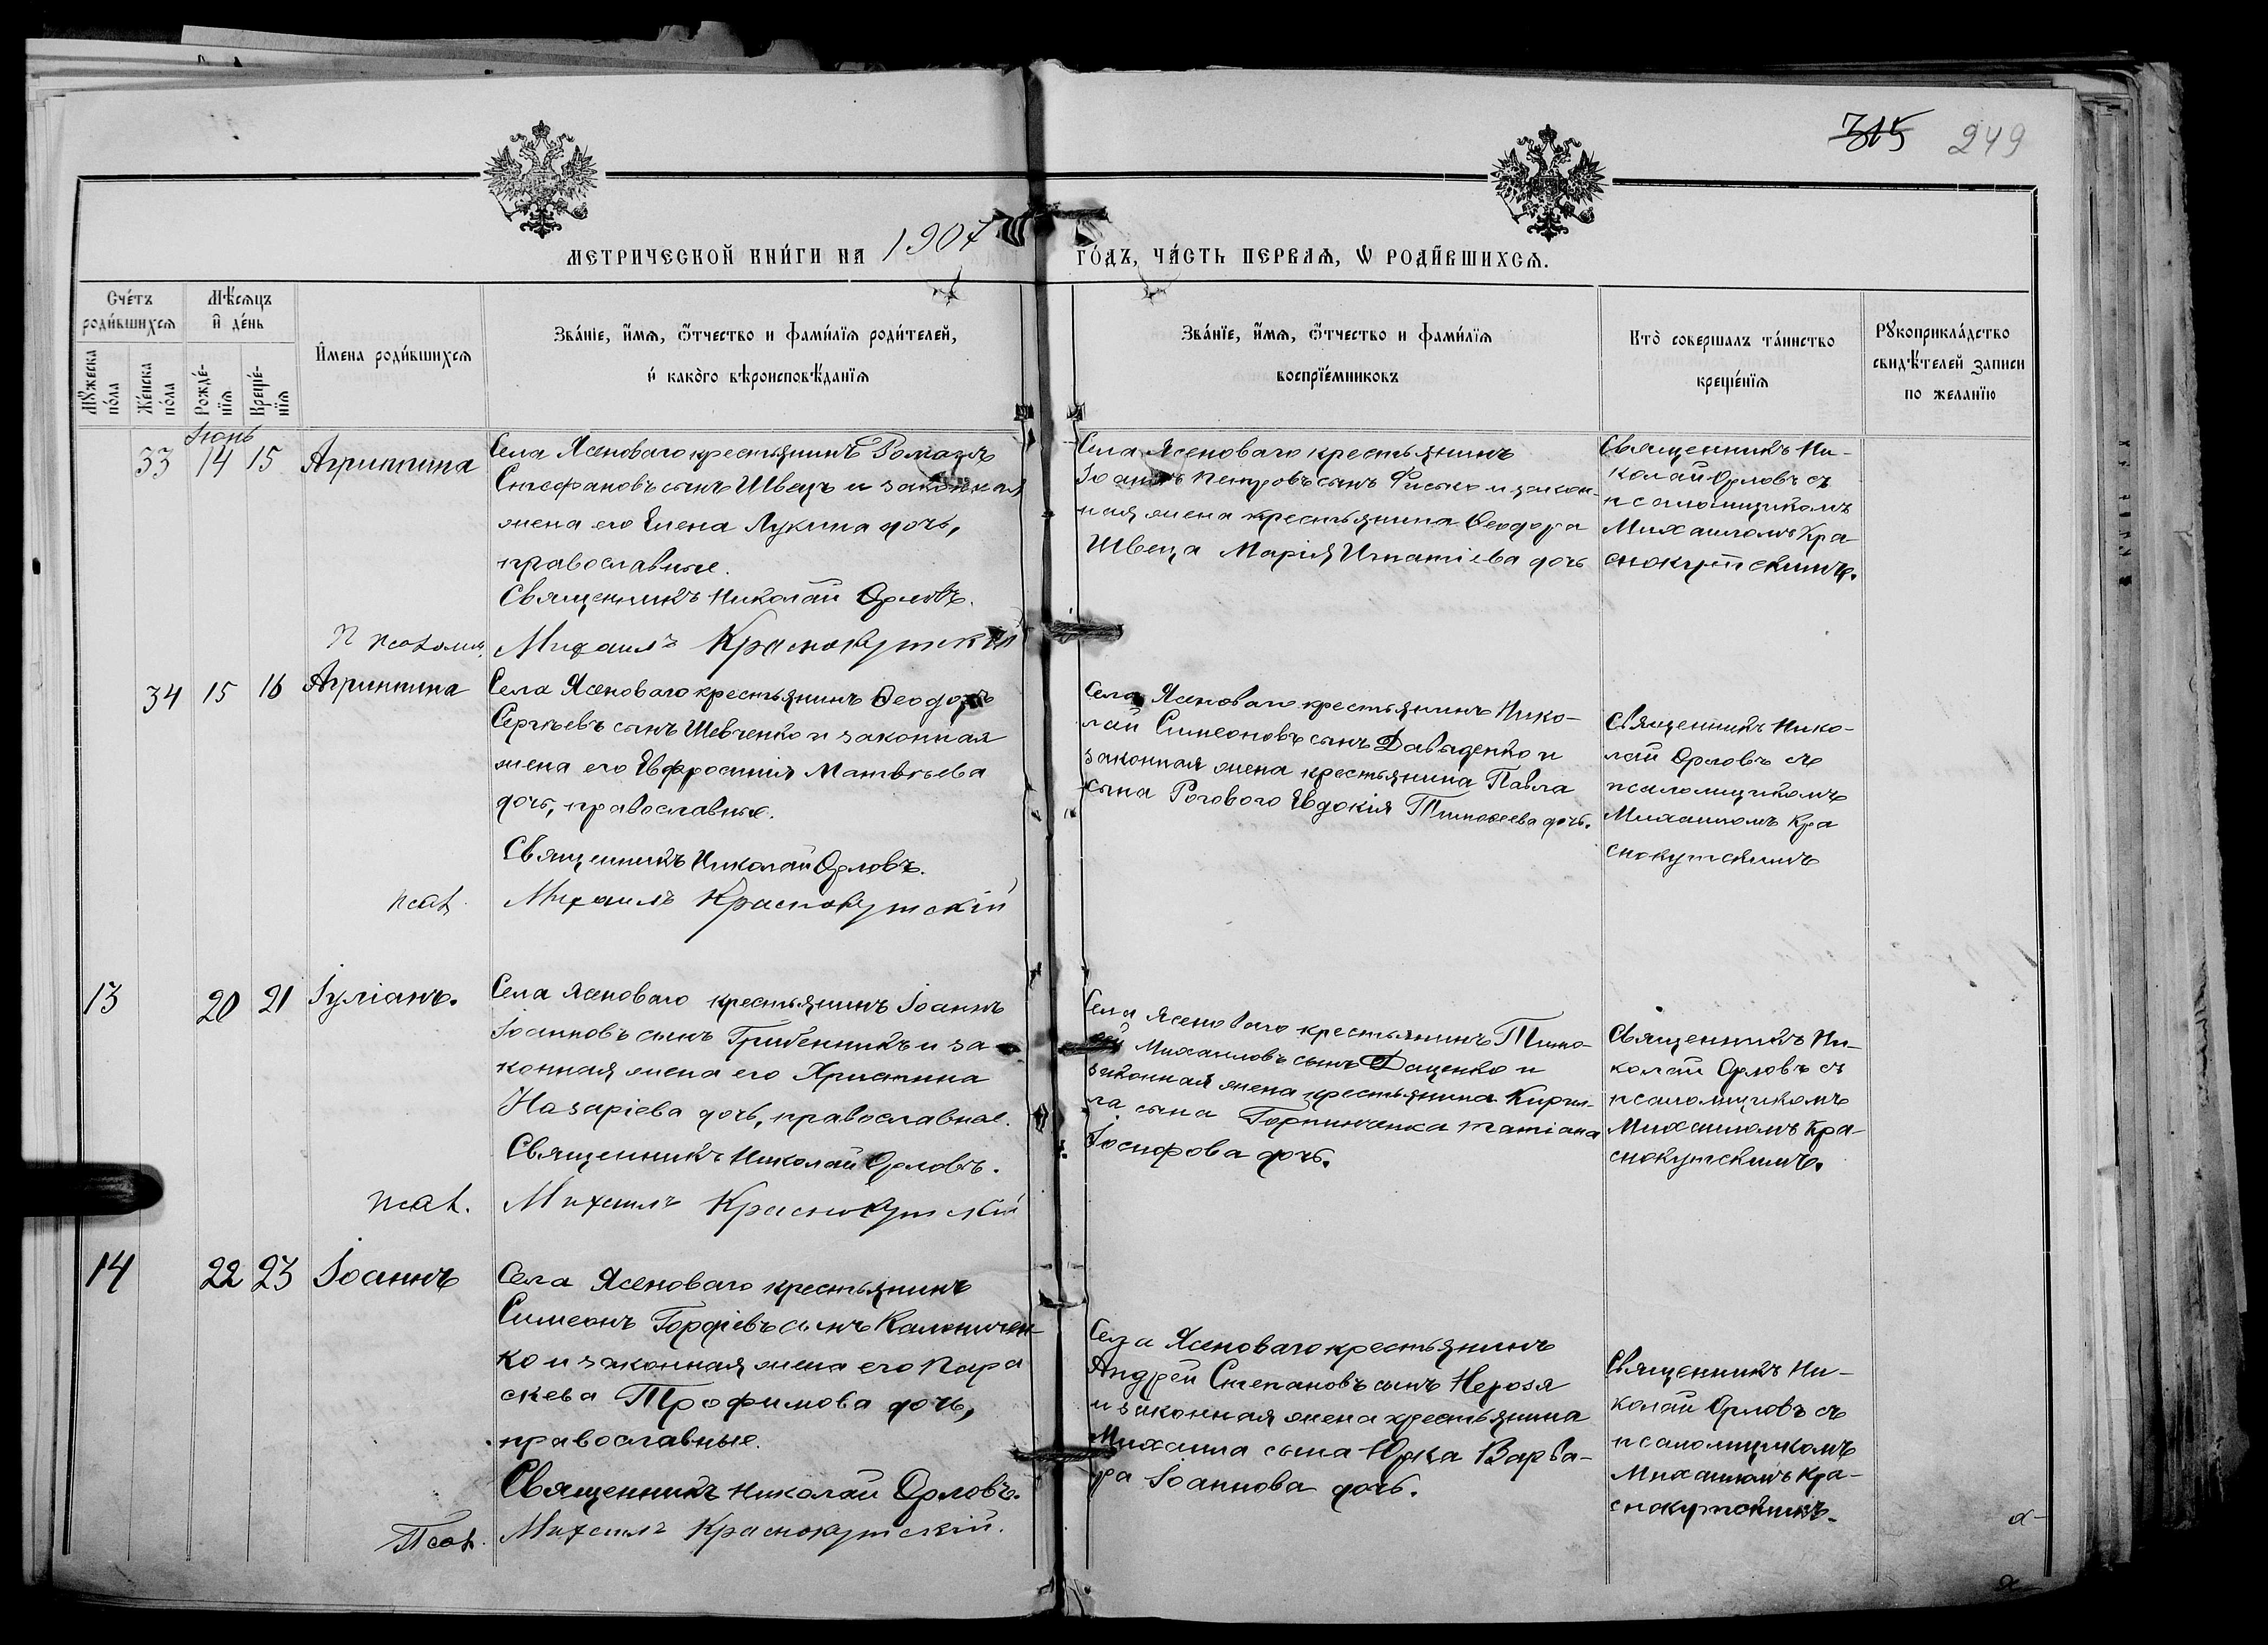 315 249
МЕТРИЧЕСКОЙ КНИ́ГИ НА 1907 ГО́ДЪ, ЧА́СТЬ ПЕРВАѦ, Ѡ РОДИ́ВШИХСѦ.
Счéтъ роди́вшихсѧ
Мѣ́сѧцъ и̂ дéнь
И̂мена роди́вшихсѧ
Звáнїе, и̂мѧ, о̂тчество и фами́лїѧ роди́телей,
и̂ какóго вѣроисповѣ́данїѧ
Звáнїе, и̂мѧ, о̂тчество и фами́лїѧ
воспрїе́мниковъ
Кто̀ совершалъ тáинство
креще́нїѧ
Рꙋкоприклáдство
свидѣ́телей записи
по желанїю
Мꙋжеска пóла
Жéнска пóла
Рождé-нїѧ
Крещé-нїѧ
Іюнь
33 14 15 Агриппина
Села Ясеноваго крестьянинъ Романъ
Стефановъ сынъ Швецъ и законная
жена его Елена Лукина дочь,
православные.
Священникъ Николай Орловъ.
Михаилъ Краснокутскій
Села Ясеноваго крестьянинъ
Іоаннъ Петровъ сынъ Фисько и закон-
ная жена крестьянина Ѳеодора
Швеца Марія Игнатіева дочь
Священникъ Ни-
колай Орловъ съ
псаломщикомъ
Михаиломъ Кра-
снокутскимъ.
34 15 16 Агриппина
Села Ясеноваго крестьянинъ Ѳеодоръ
Сергѣевъ сынъ Шевченко и законная
жена его Евфросинія Матвѣева
дочь, православные.
Священникъ Николай Орловъ.
псал. Михаилъ Краснокутскій
Села Ясеноваго крестьянинъ Нико-
лай Симеоновъ сынъ Давыденко и
законная жена крестьянина Павла
сына Рогового Евдокія Тимоѳеева дочь.
Священникъ Нико-
лай Орловъ съ
псаломщикомъ
Михаиломъ Кра
снокутскимъ
13 20 21 Іуліанъ.
Села Ясеноваго крестьянинъ Іоаннъ
Іоанновъ сынъ Гребенникъ и за-
конная жена его Христина
Назаріева дочь, православные.
Священникъ Николай Орловъ.
псал. Михаилъ Краснокутскій
Села Ясеноваго крестьянинъ Тимо-
ѳей Михаиловъ сынъ Даценко и
законная жена крестьянина Кирил-
ла сына Горпинченка Татіана
Іосифова дочь.
Священникъ Ни-
колай Орловъ съ
псаломщикомъ
Михаиломъ Кра-
снокутскимъ.
14 22 23 Іоаннъ
Села Ясеноваго крестьянинъ
Симеонъ Гордіевъ сынъ Калиничен-
ко и законная жена его Пара
скева Трофимова дочь,
православные.
Священникъ Николай Орловъ.
Псал. Михаилъ Краснокутскій.
Села Ясеноваго крестьянинъ
Андрей Степановъ сынъ Нерозя
и законная жена крестьянина
Михаила сына Юрка Варва-
ра Іоаннова дочь.
Священникъ Ни-
колай Орловъ съ
псаломщикомъ
Михаиломъ Кра-
снокутскимъ.